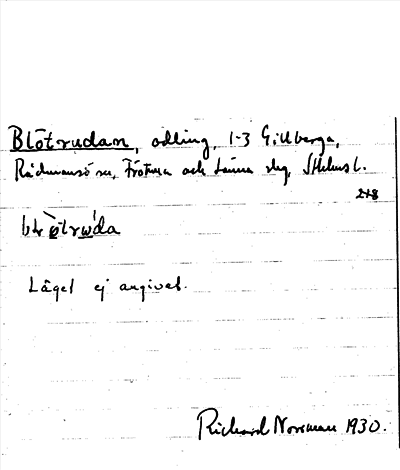 Blötrudan, odling, 1-3 Gillberga,
Rådmansö sn, Frötuna och Länna skg, Sthlms l.
248
blø̀trωd́a
Läget ej angivet.
Richard Norrman 1930.